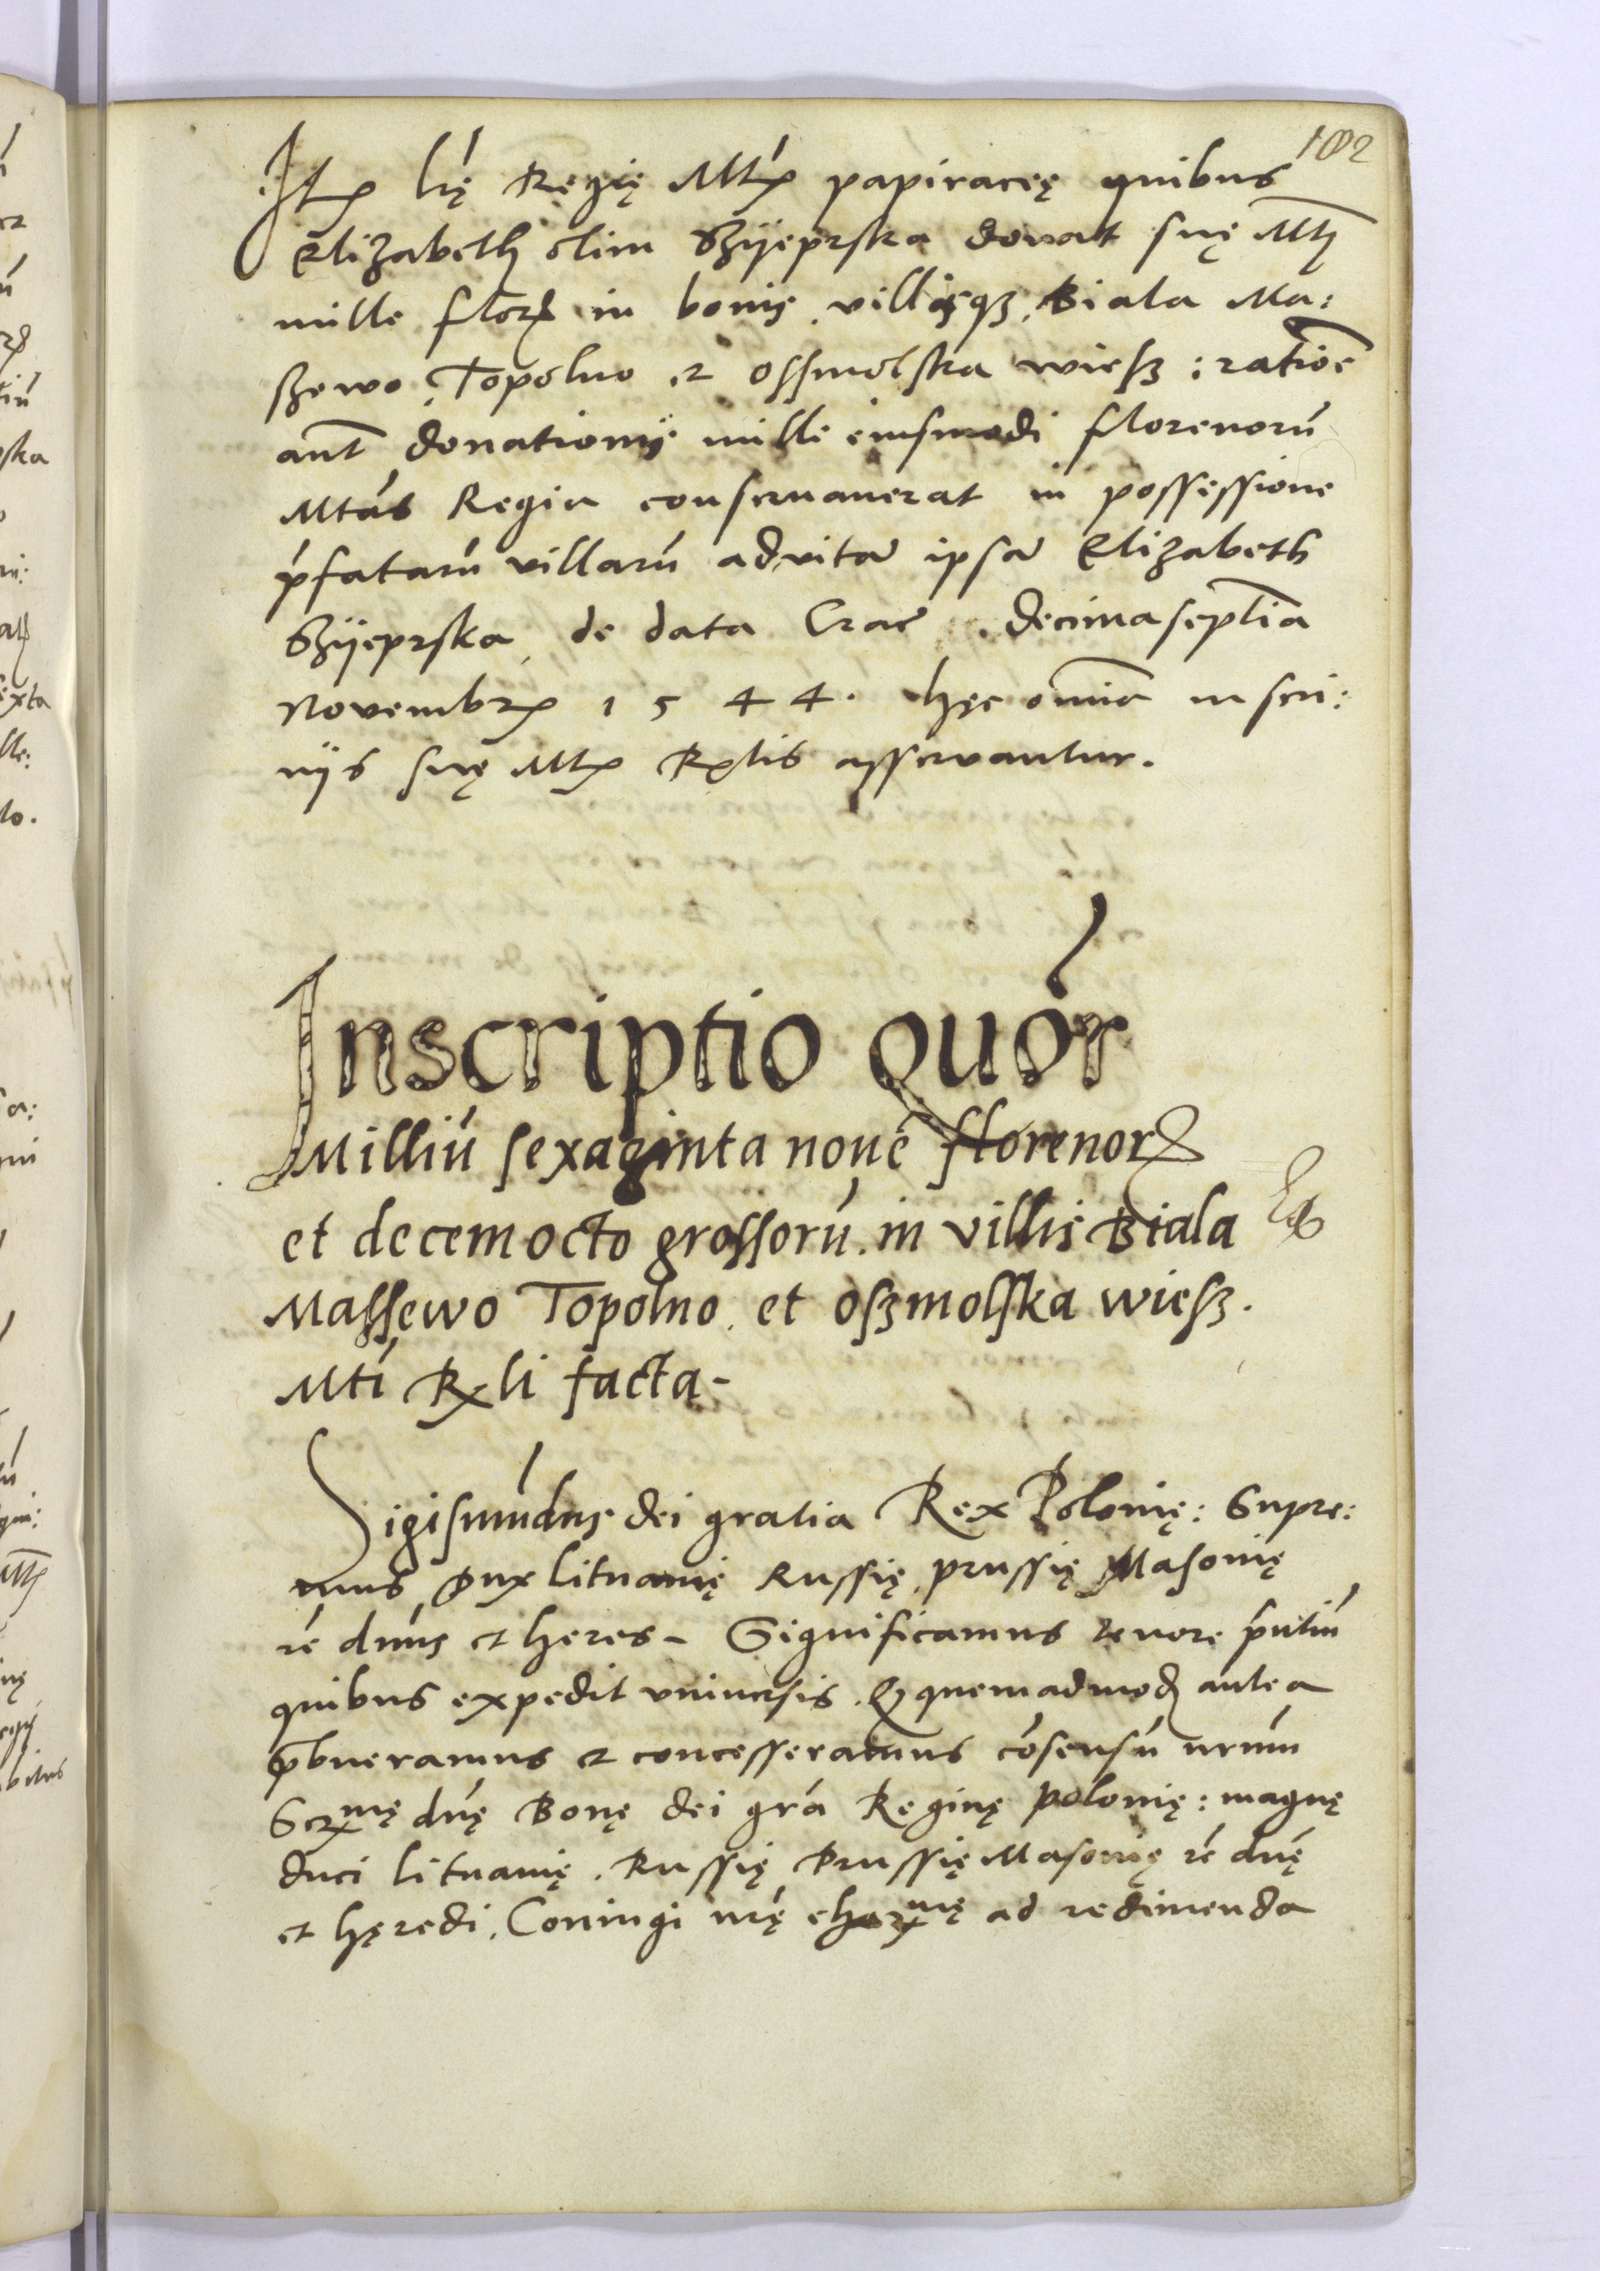 102
Itꝫ lrę Regię Mtꝫ papiraceę quibus
Elizabeth olim Szÿeprska donat suę Mtj
mille florꝫ in bonis villisqꝫ Biala Ma:
szewo, Topolno et Ossmolska wiesz: ratioē
aūt donationis mille eiusmodi florenorū
Mtas Regia conseruauerat in possessione
p̄fatarū villarū ad vitā ipsā Elizabeth
Szÿeprska, de data Crac̄. decimaseptīa
Novembrꝫ 1544. hęc om̄ia in scri:
nijs suę Mtꝫ Rꝫlis asservantur.
Inscriptio quōr
Milliū sexaginta nouē florenorꝫ
et decem octo grossorū in villis Biala
Massewo Topolno et Oszmolska wiesz.
Mti Rꝫli facta-
Sigismūdus dei gratia Rex Polonię: Supre:
mus Dux lituanię Russię, prussię Masonię
rē dn̄us et heres- Significamus tenore pn̄tiū
quibus expedit vniuersis. Qꝫ quemadmodꝫ antea
p̄bueramus et concesseramus cōsensū nr̄um
Serꝫmę dn̄ę Bonę dei gr̄a Reginę polonię: magnę
duci lituanię. Russię Prussię Masonię rē dn̄ę
et hęredi. Coniugi nr̄ę charꝫmę ad redimenda